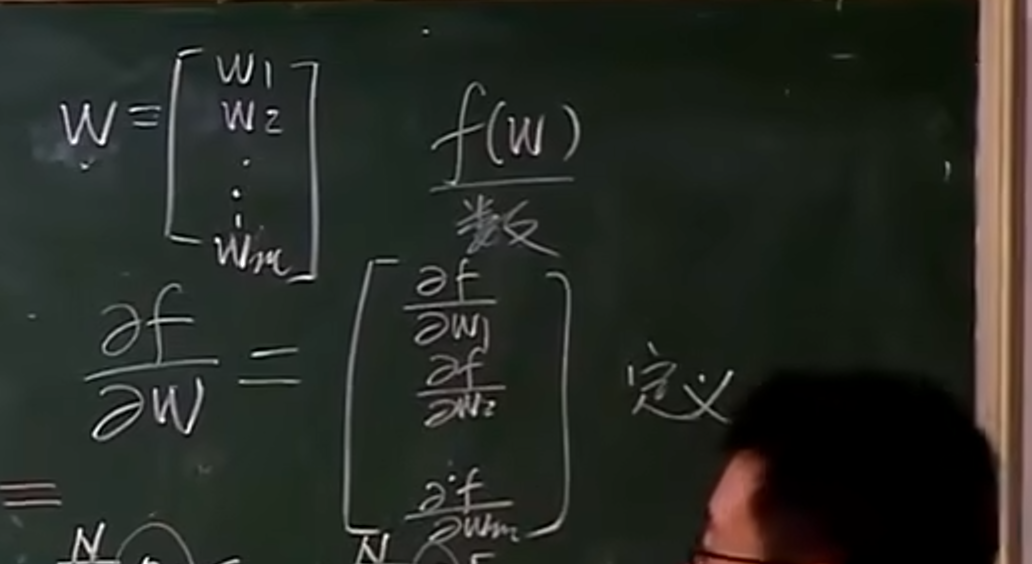 W = [w1 w2 ⋮ wm]
f(w)
数
∂f/∂w = [∂f/∂w1 ∂f/∂w2 ⋮ ∂f/∂wm] 定义
=
N
N